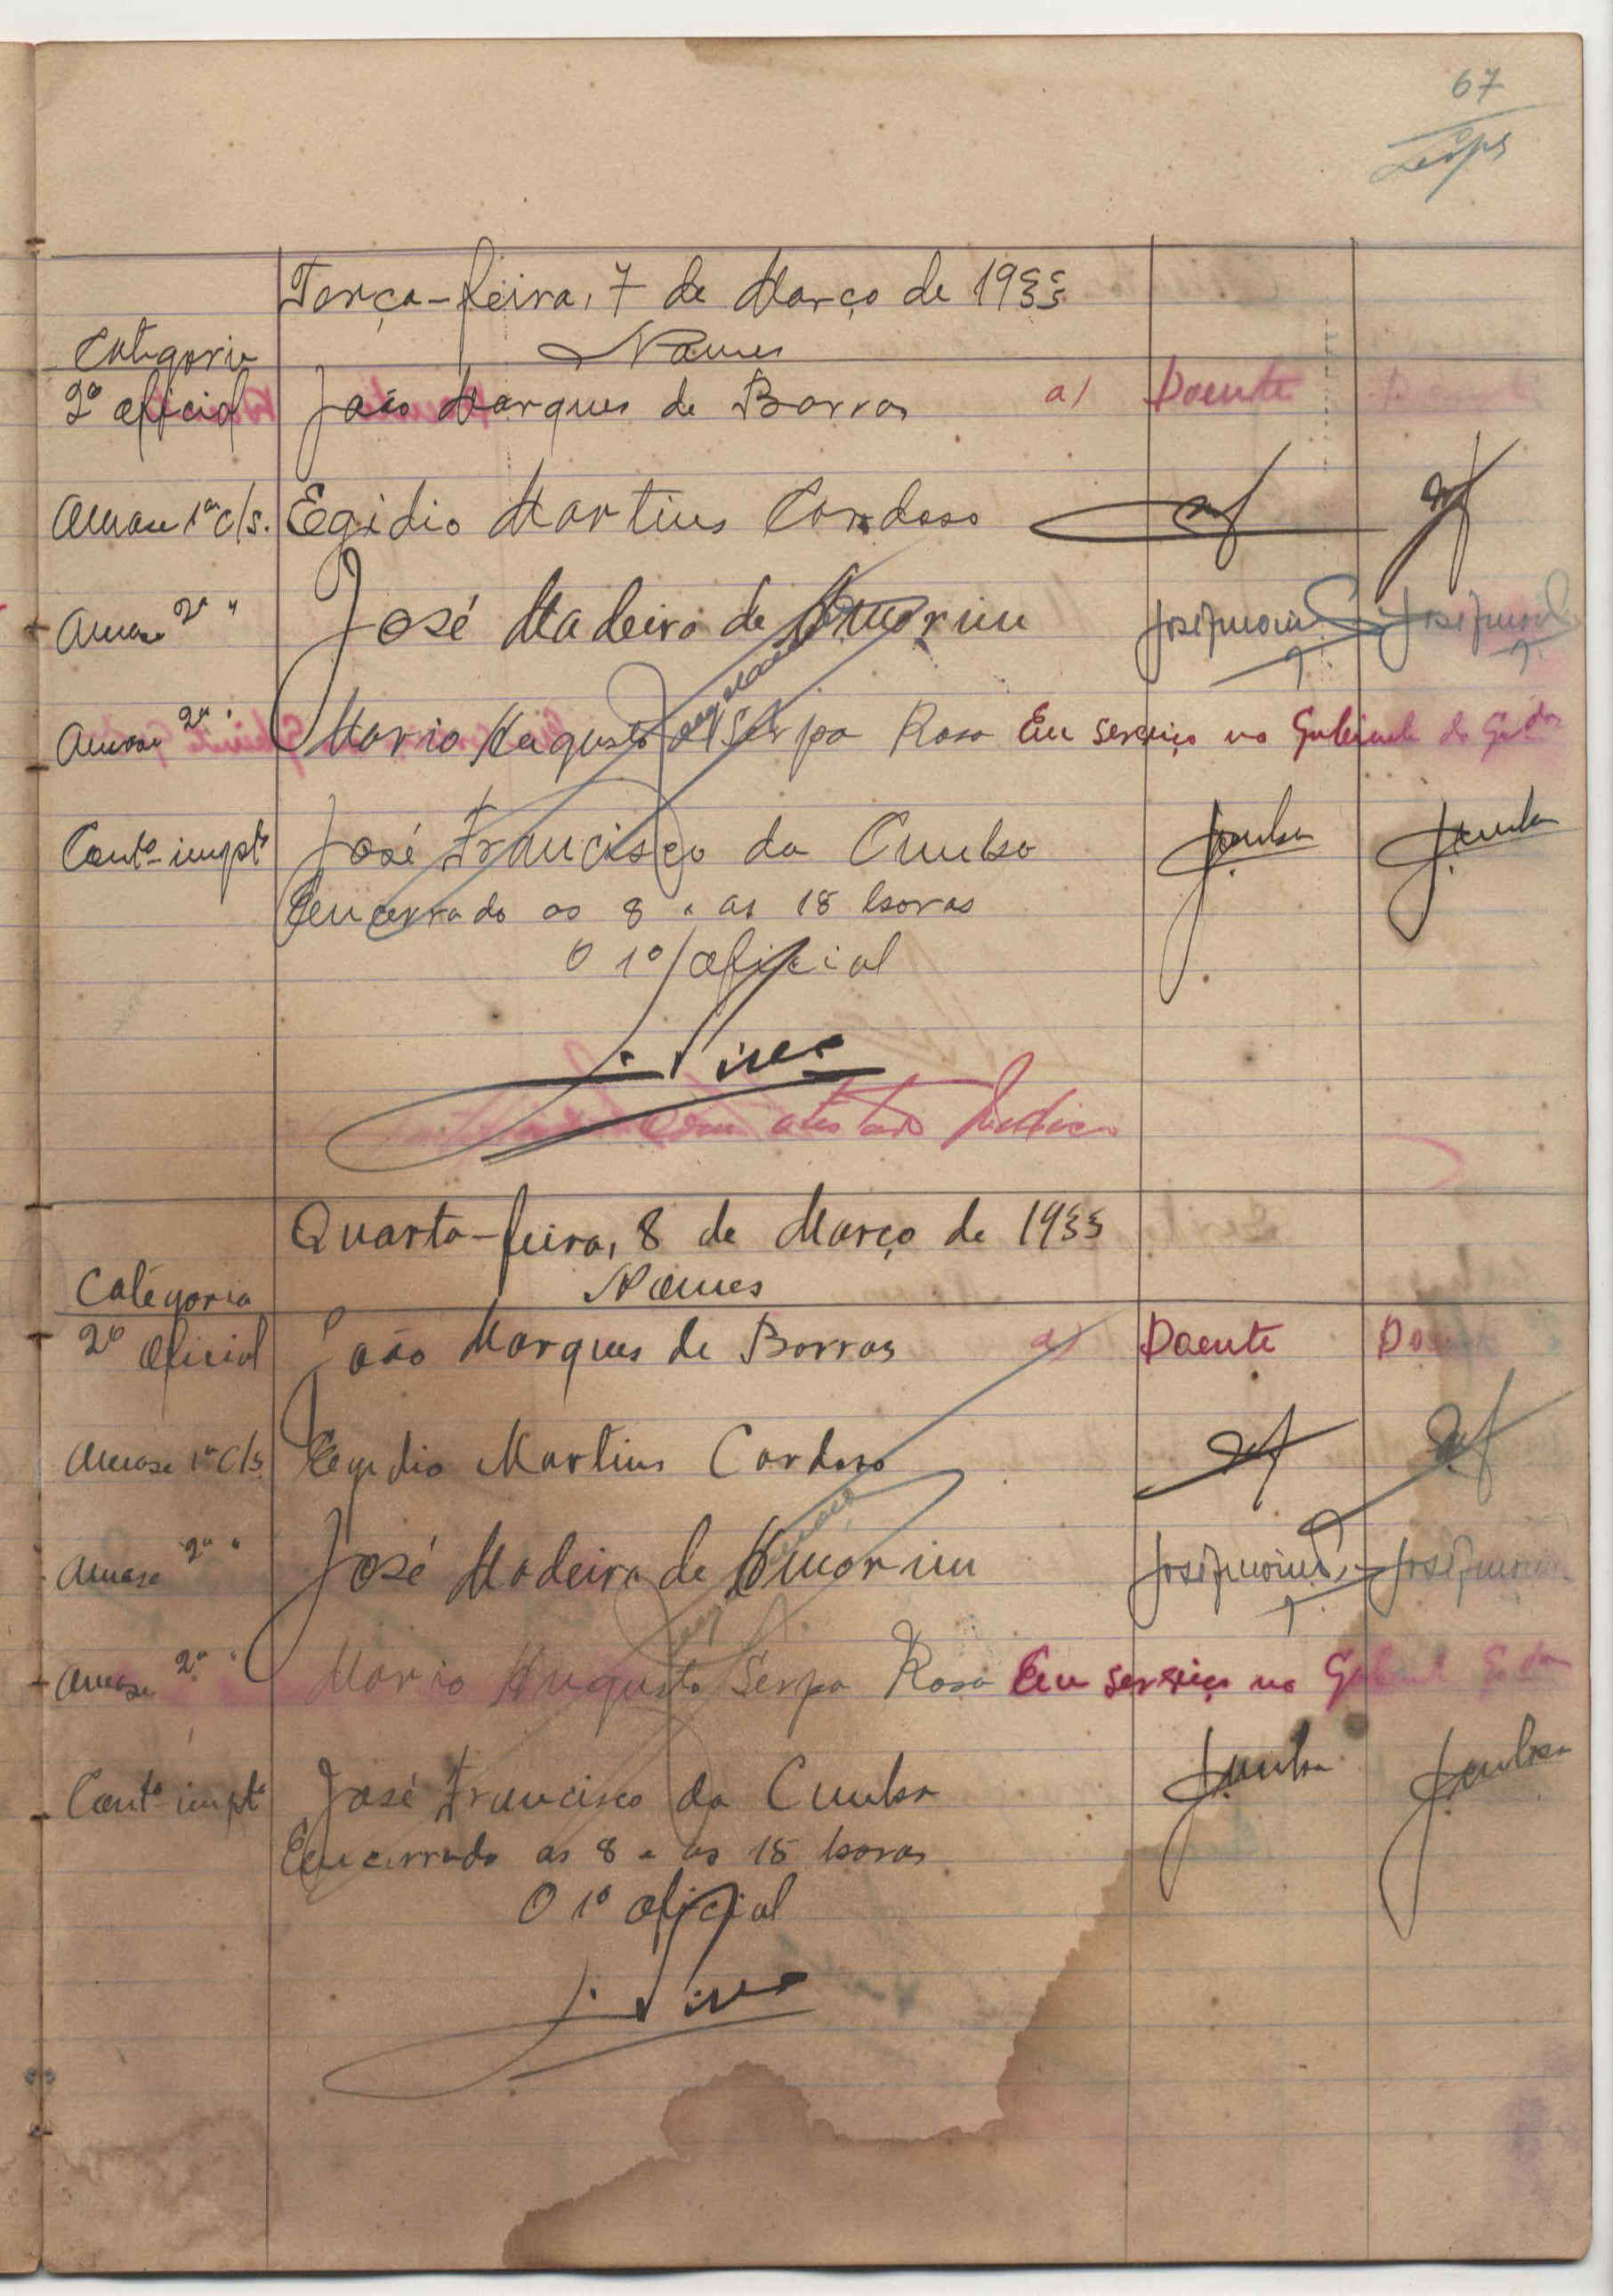 67
Terça-feira, 7 de Março de 1933
Categoria Nomes
2º oficial João Marques de Barros a) Doente Doente
Amanse 1ª cls. Egidio Martins Cardoso
Amanse 2ª " José Madeira de Amorim JoséAmorim JoséAmorim
Amanse 2ª " Mario Augusto Serpa Rosa Em serviço no Gabinete do Gdor
Contº imptº José Francisco da Cunha JCunha JCunha
Encerrado as 8 e as 18 horas
O 1º oficial
J. Pires
Com atestado medico
Quarta-feira, 8 de Março de 1933
Categoria Nomes
2º Oficial João Marques de Barros a) Doente Do
Amanse 1ª cls Egidio Martins Cardoso
Amanse 2ª " José Madeira de Amorim JoséAmorim JoséAmorim
Amanse 2ª " Mario Augusto Serpa Rosa Em serviço no
Contº imptº José Francisco da Cunha JCunha JCunha
Encerrado as 8 e as 18 horas
O 1º oficial
J. Pires